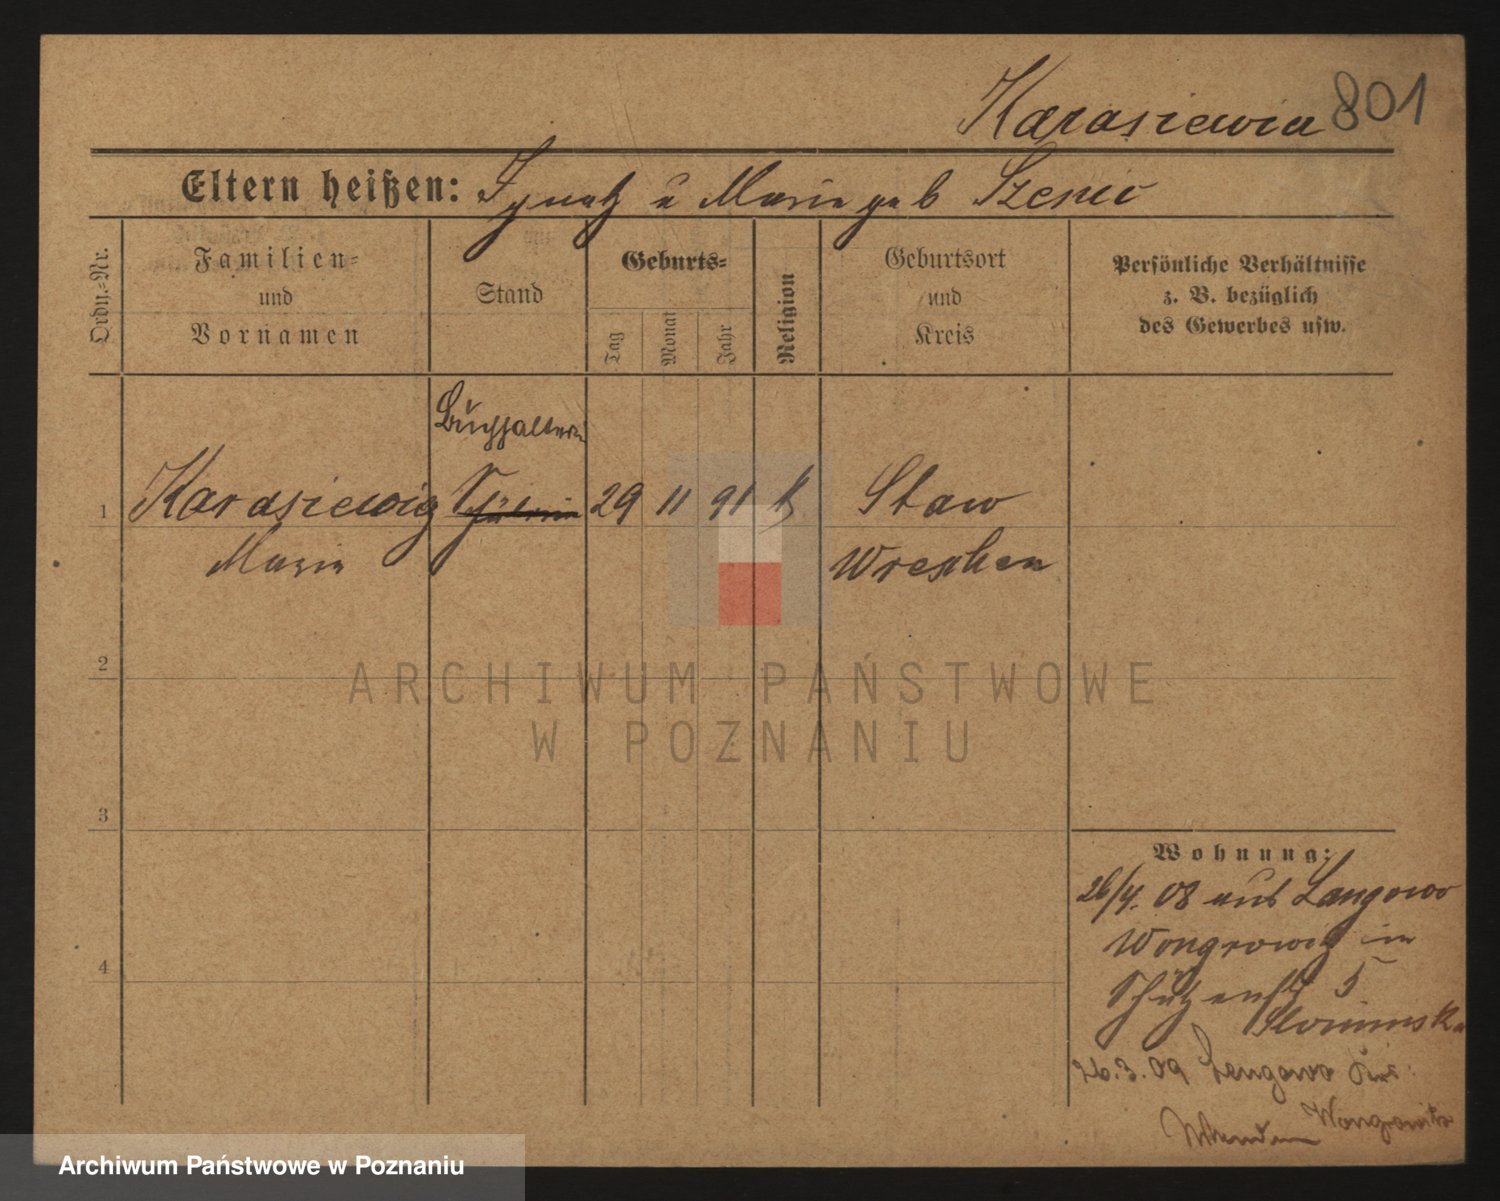 Karasiewicz 801
Eltern heißen: Ignatz u Marie geb Szenic
Ordn.-Nr.
Familien-
und
Vornamen
Stand
Geburts-
Tag
Monat
Jahr
Religion
Geburtsort
und
Kreis
Persönliche Verhältnisse
z. B. bezüglich
des Gewerbes usw.
Buchhalterin
1 Karasiewicz Schülerin 29 11 91 k Staw
Marie Wreschen
2
ARCHIWUM PAŃSTWOWE
W POZNANIU
3
Wohnung:
26/4. 08 aus Langowo
Wongrowitz in
4
Schützenstr 5
Slominska
26.3.09 Lengowo Krs.
Wongrowitz
Archiwum Państwowe w Poznaniu